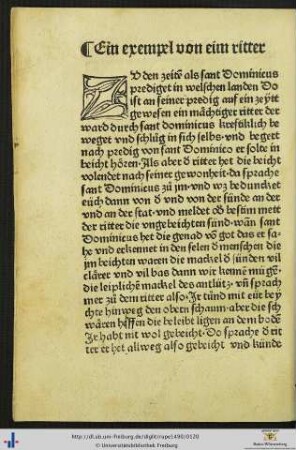 ¶Ein exempel von eim ritter
ZV den zeitẽ als sant Dominicus
prediget in welschen landen Do
ist an seiner predig auf ein zeytt
gewesen ein mächtiger ritter der
ward durch sant dominicus krefftiklich be
weget vnd schlůg in sich selbs. vnd begert
nach predig von sant Dominico er solte in
beicht hören. Als aber d̕ ritter het die beicht
volendet nach seiner gewonheit. da sprache
sant Dominicus zů jm. vnd wz beduncket
eüch dann von d̕ vnd von der sünde an der
vnd an der stat. vnd meldet ob bestim mett
der ritter die vngebeichten sünd. wañ sant
Dominicus het die genad võ got das er sa
he vnd erkennet in den selen d̕ menschen die
jm beichten waren die mackel d̕ sünden vil
clärer vnd vil bas dann wir kennẽ mügẽ.
die leiplichẽ mackel des antlütz. vñ sprach
mer zů dem ritter also. Ir tůnd mit eür bey
chte hinweg den obern schaum. aber die sch
wären heffen die beleibt ligen an dem bodẽ
Ir habt nit wol gebeicht. Do sprache d̕ rit
ter er het allweg also gebeicht vnd künde
http://dl.ub.uni-freiburg.de/diglit/rape1490/0120
© Universitätsbibliothek Freiburg
Baden-Württemberg